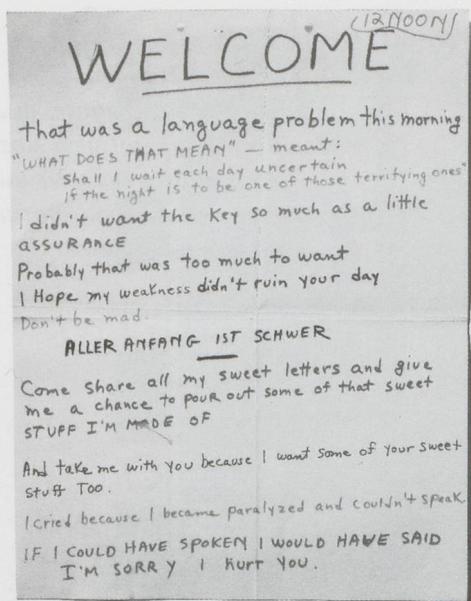 (12 NOON)
WELCOME
that was a language problem this morning
"WHAT DOES THAT MEAN" — meant:
shall I wait each day uncertain
if the night is to be one of those terrifying ones"
I didn't want the key so much as a little
ASSURANCE
Probably that was too much to want
I Hope my weakness didn't ruin your day
Don't be mad.
ALLER ANFANG IST SCHWER
Come share all my sweet letters and give
me a chance to pour out some of that sweet
STUFF I'M MADE OF
And take me with you because I want some of your sweet
stuff Too.
I cried because I became paralyzed and couldn't speak
IF I COULD HAVE SPOKEN I WOULD HAVE SAID
I'M SORRY I HURT YOU.